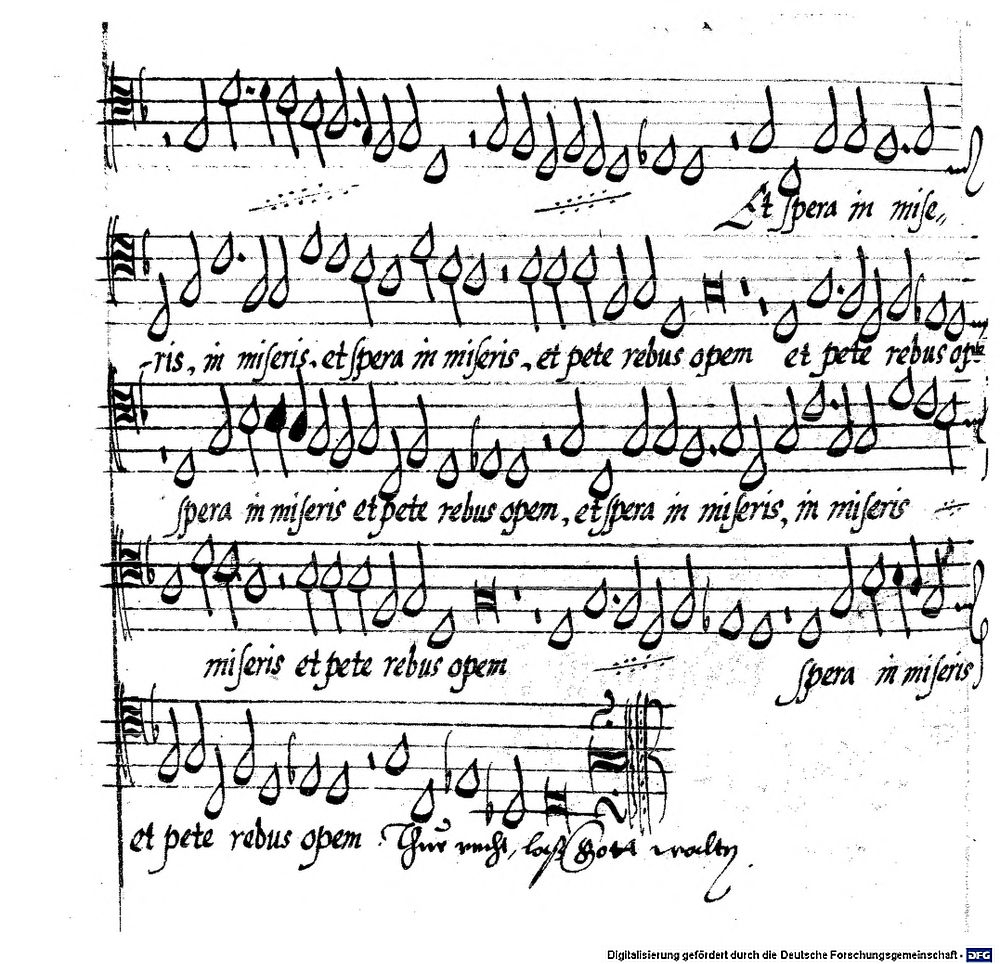 Et spera in mise„
-ris, in miseris. et spera in miseris, et pete rebus opem et pete rebus opē
spera in miseris et pete rebus opem, et spera in miseris, in miseris
miseris et pete rebus opem spera in miseris
et pete rebus opem Thue recht, laß Gott walten
Digitalisierung gefördert durch die Deutsche Forschungsgemeinschaft - DFG